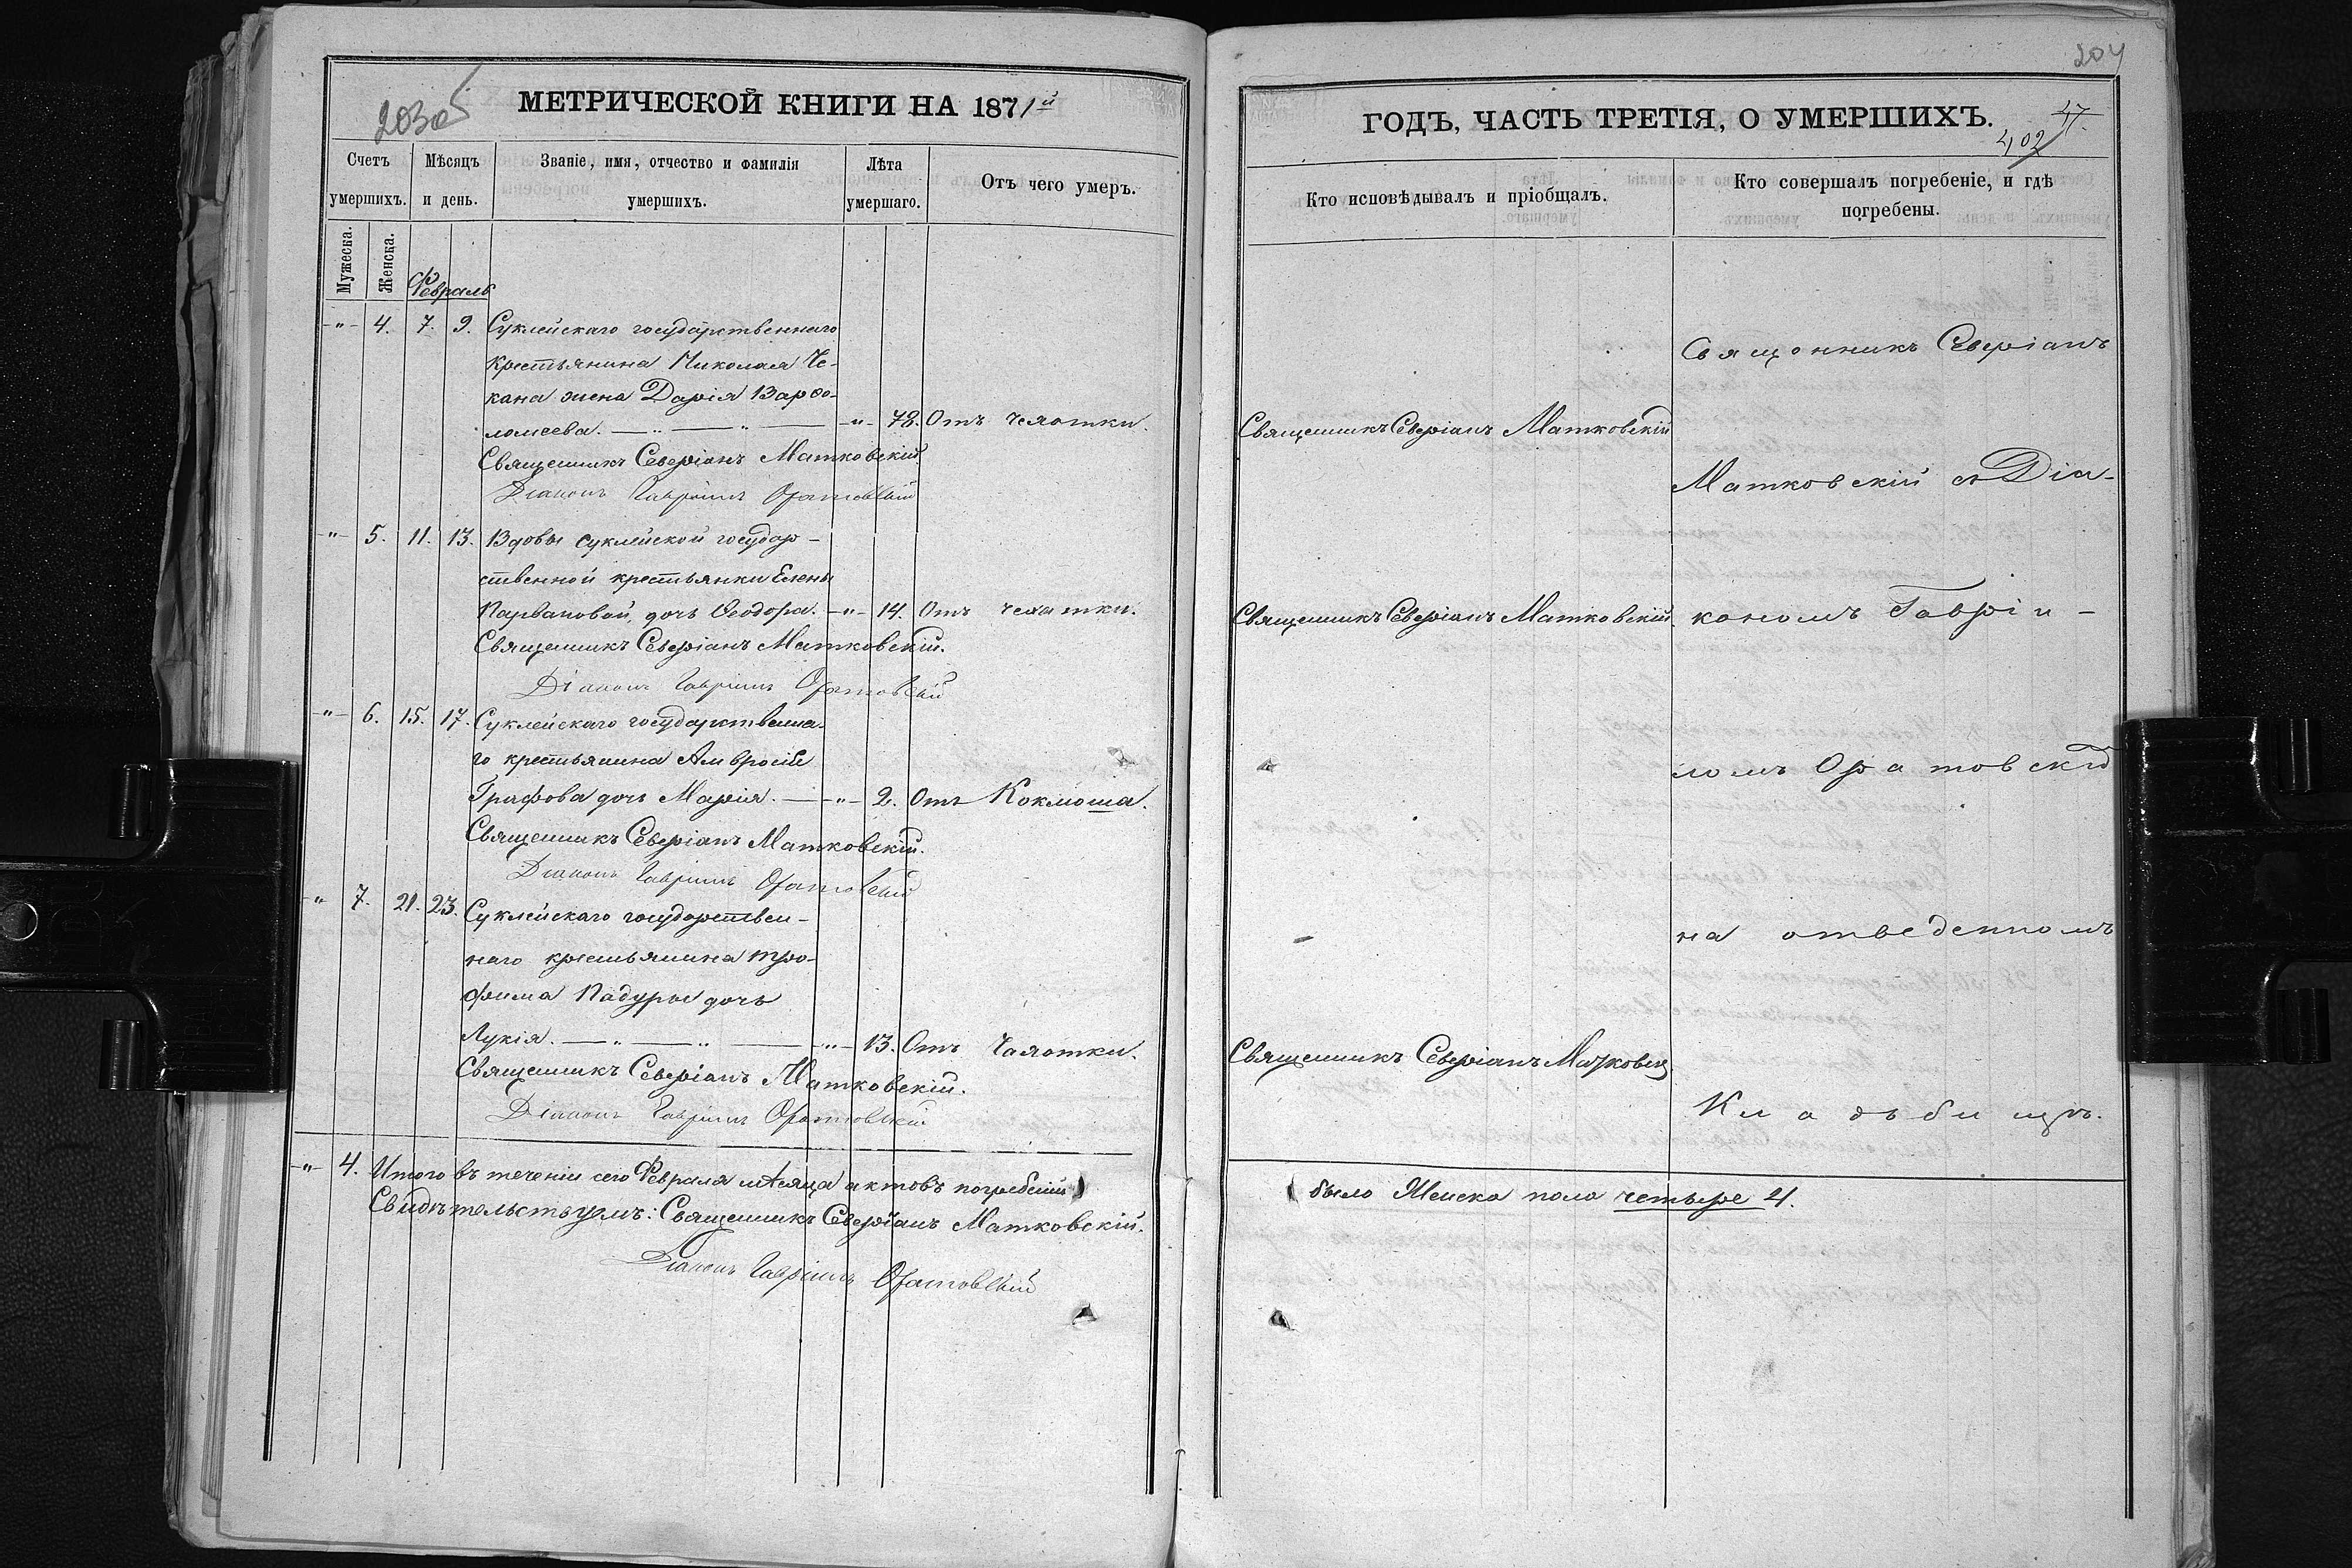 203об
МЕТРИЧЕСКОЙ КНИГИ НА 1871й
Счетъ умершихъ.
Мѣсяцъ и день.
Званіе, имя, отчество и фамилія умершихъ.
Лѣта умершаго.
Отъ чего умеръ.
Мужеска.
Женска.
Февраль
-"- 4. 7. 9. Суклейскаго государственнаго
крестьянина Николая Че-
кана жена Дарія Варѳо-
ломеева. — " — " — -"- 78. Отъ Чехотки.
Священникъ Северіанъ Матковскій.
Діаконъ Гавріилъ Оратовскій
-"- 5. 11. 13. Вдовы суклейской государ-
ственной крестьянки Елены
Парвановой, дочь Ѳеодора. -"- 14. Отъ чехотки.
Священникъ Северіанъ Матковскій.
Діаконъ Гавріилъ Оратовскій
-"- 6. 15. 17. Суклейскаго государственна-
го крестьянина Амвросія
Графова дочь Марія. — -"- 2. Отъ Коклюша.
Священникъ Северіанъ Матковскій.
Діаконъ Гавріилъ Оратовскій
-"- 7. 21. 23. Суклейскаго государствен-
наго крестьянина Тро-
фима Падуры дочь
Лукія. — " — " — -"- 13. Отъ Чахотки.
Священникъ Северіанъ Матковскій.
Діаконъ Гавріилъ Оратовскій
-"- 4. Итого въ теченіи сего Февраля мѣсяца актовъ погребеній)
Свидѣтельствуемъ: Священникъ Северіанъ Матковскій.
Діаконъ Гавріилъ Оратовскій
204
ГОДЪ, ЧАСТЬ ТРЕТІЯ, О УМЕРШИХЪ.
47.
402
Кто исповѣдывалъ и пріобщалъ.
Кто совершалъ погребеніе, и гдѣ
погребены.
Священникъ Северіанъ
Священникъ Северіанъ Матковскій
Матковскій съ Діа-
Священникъ Северіанъ Матковскій.
кономъ Гавріи-
ломъ Оратовскій
на отведенномъ
Священникъ Северіанъ Матковскій
Кладьбищѣ.
(было Женска пола четыре 4.